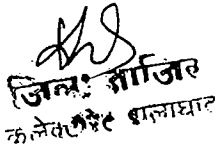 जिला नाजिर
कलेक्टोरेट बालाघाट